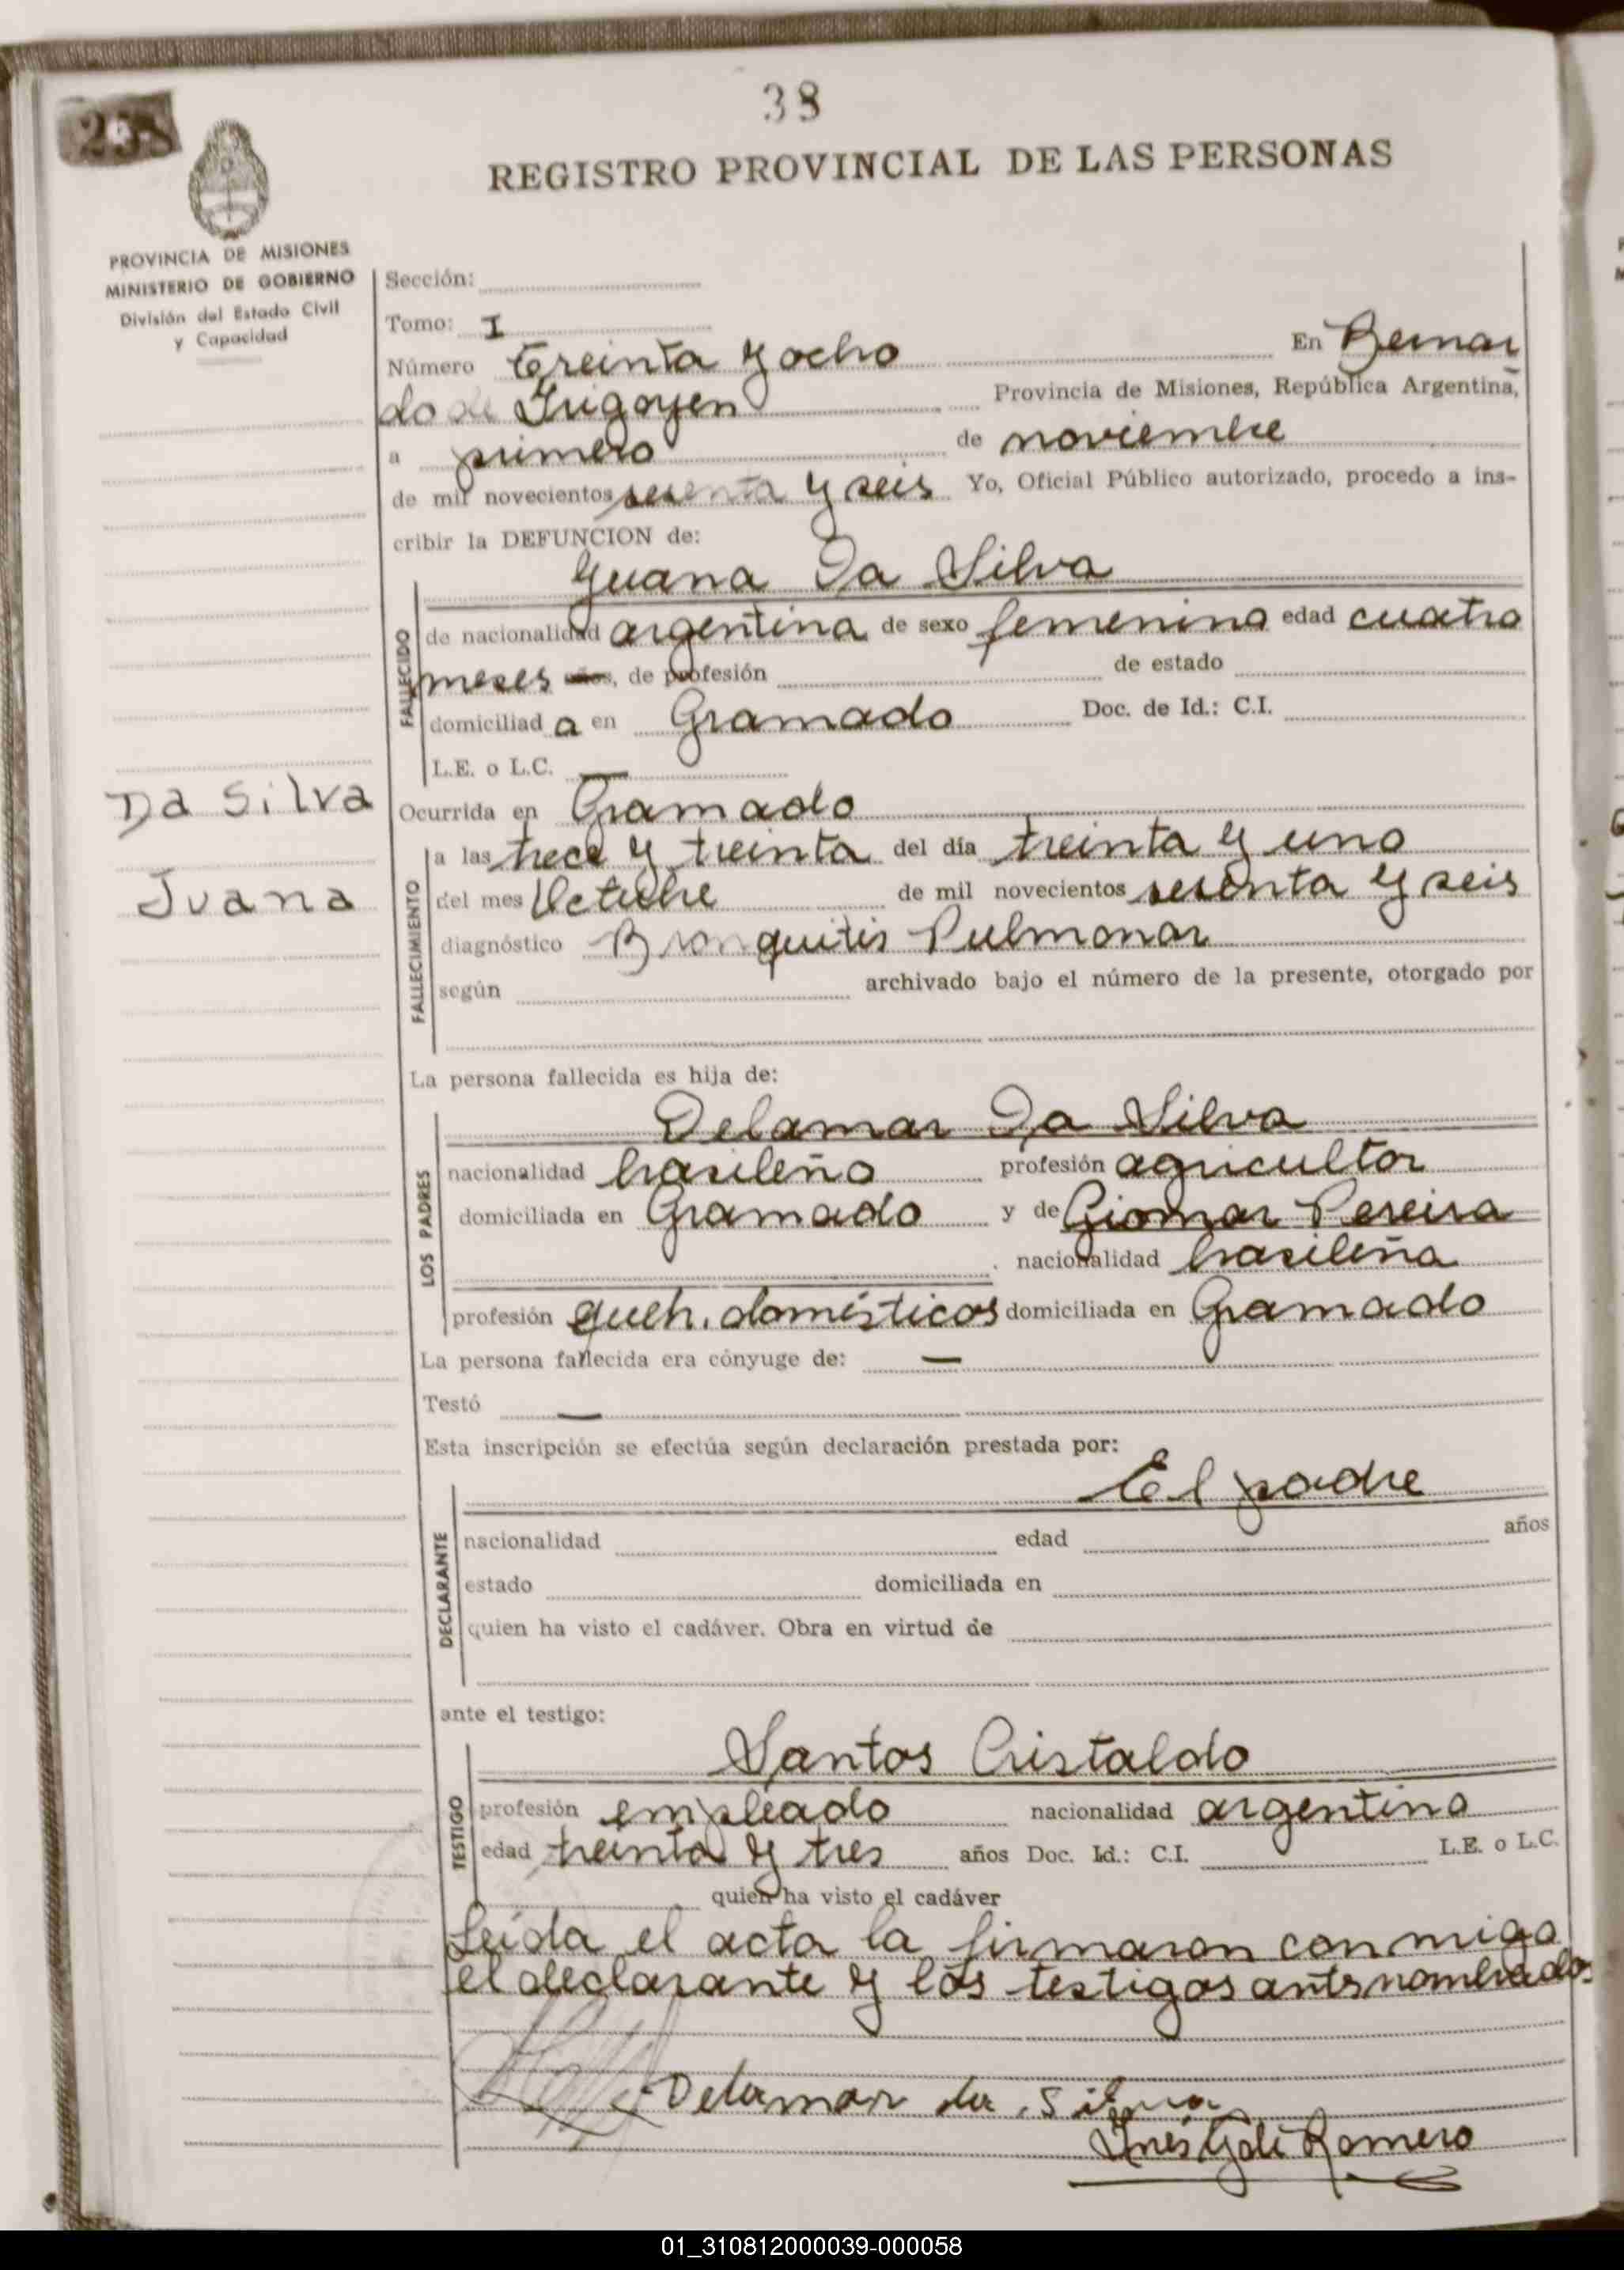 38
238
REGISTRO PROVINCIAL DE LAS PERSONAS
PROVINCIA DE MISIONES
MINISTERIO DE GOBIERNO
División del Estado Civil
y Capacidad
Sección:
Tomo: I
Número Treinta y ocho En Bernar
do de Irigoyen Provincia de Misiones, República Argentina,
a primero de noviembre
de mil novecientos sesenta y seis Yo, Oficial Público autorizado, procedo a ins-
cribir la DEFUNCION de:
Juana Da Silva
FALLECIDO
de nacionalidad argentina de sexo femenino edad cuatro
meses años, de profesión de estado
domiciliad a en Gramado Doc. de Id.: C.I.
L.E. o L.C. —
Da Silva
Juana
Ocurrida en Gramado
FALLECIMIENTO
a las trece y treinta del día treinta y uno
del mes Octubre de mil novecientos sesenta y seis
diagnóstico Bronquitis Pulmonar
según archivado bajo el número de la presente, otorgado por
La persona fallecida es hija de:
Delamar Da Silva
LOS PADRES
nacionalidad brasileño profesión agricultor
domiciliada en Gramado y de Giomar Pereira
nacionalidad brasileña
profesión queh. domésticos domiciliada en Gramado
La persona fallecida era cónyuge de: —
Testó —
Esta inscripción se efectúa según declaración prestada por:
El padre
DECLARANTE
nacionalidad edad años
estado domiciliada en
quien ha visto el cadáver. Obra en virtud de
ante el testigo:
Santos Cristaldo
TESTIGO
profesión empleado nacionalidad argentino
edad treinta y tres años Doc. Id.: C.I. L.E. o L.C.
quien ha visto el cadáver
Leída el acta la firmaron conmigo
el declarante y los testigos antsnombrados
Delamar da Silva
Inés Romero
01_310812000039-000058